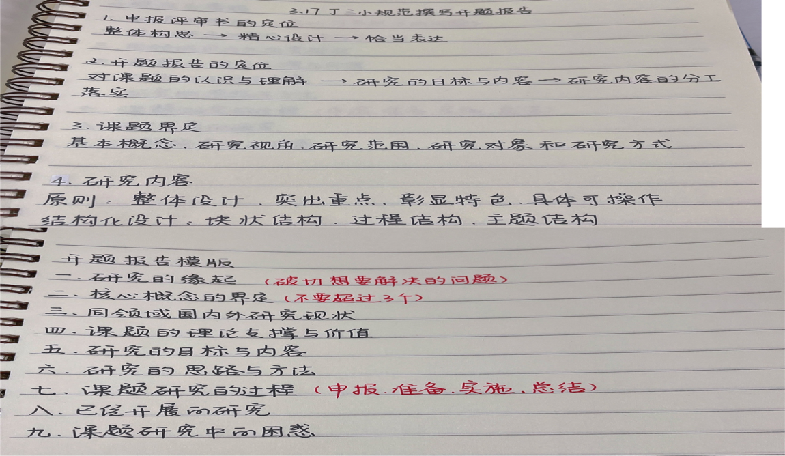 3.17 丁三小规范撰写开题报告
1. 申报评审书的定位
整体构思 → 精心设计 → 恰当表达
2. 开题报告的定位
对课题的认识与理解 → 研究的目标与内容 → 研究内容的分工
落实
3. 课题界定
基本概念、研究视角、研究范围、研究对象和研究方式
4. 研究内容
原则：整体设计、突出重点、彰显特色、具体可操作
结构化设计：块状结构、过程结构、主题结构
开题报告模版
一. 研究的缘起（破切想要解决的问题）
二. 核心概念的界定（不要超过3个）
三. 同领域国内外研究现状
四. 课题的理论支撑与价值
五. 研究的目标与内容
六. 研究的思路与方法
七. 课题研究的过程（申报、准备、实施、总结）
八. 已经开展的研究
九. 课题研究中的困惑